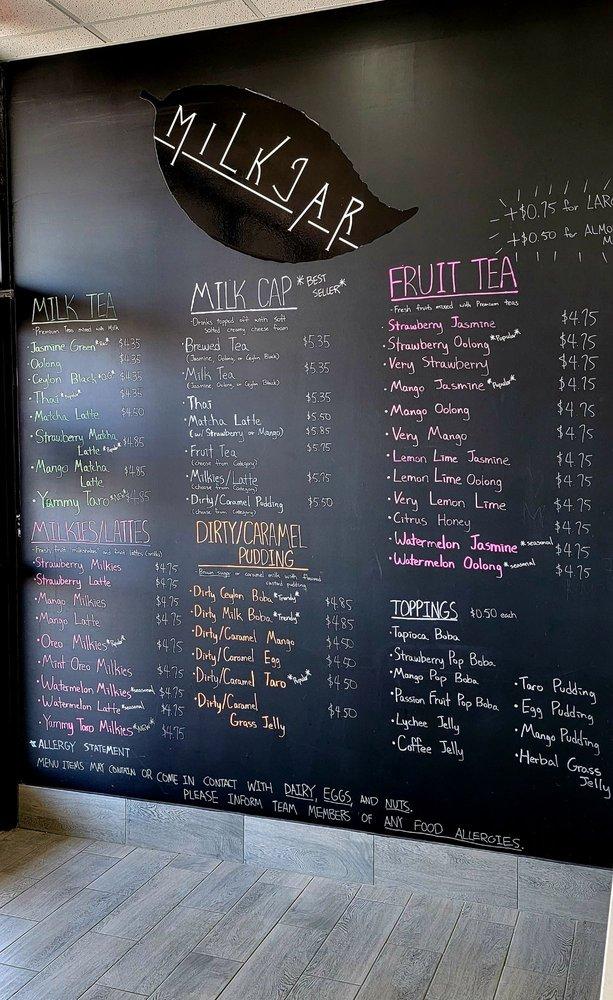 MILKJAR
+$0.75 for LAR
+$0.50 for ALMO
MILK TEA
- Premium Teas mixed with Milk
• Jasmine Green $4.35
• Oolong $4.35
• Ceylon Black *OG* $4.35
• Thai *Popular* $4.35
• Matcha Latte $4.50
• Strawberry Matcha
Latte *Popular* $4.85
• Mango Matcha
Latte $4.85
• Yammy Taro *NEW* $4.85
MILK CAP *BEST
SELLER*
- Drinks topped off with soft
salted creamy cheese foam
• Brewed Tea $5.35
(Jasmine, Oolong, or Ceylon Black)
• Milk Tea $5.35
(Jasmine, Oolong, or Ceylon Black)
• Thai $5.35
• Matcha Latte $5.50
(w/ Strawberry or Mango) $5.85
• Fruit Tea $5.75
(choose from Category)
• Milkies/Lattes $5.75
(choose from Category)
• Dirty/Caramel Pudding $5.50
(choose from Category)
FRUIT TEA
- Fresh fruits mixed with Premium teas
• Strawberry Jasmine $4.75
• Strawberry Oolong *Popular* $4.75
• Very Strawberry $4.75
• Mango Jasmine *Popular* $4.75
• Mango Oolong $4.75
• Very Mango $4.75
• Lemon Lime Jasmine $4.75
• Lemon Lime Oolong $4.75
• Very Lemon Lime $4.75
• Citrus Honey $4.75
• Watermelon Jasmine *seasonal $4.75
• Watermelon Oolong *seasonal $4.75
MILKIES/LATTES
- Fresh fruit milkshakes and fruit lattes
• Strawberry Milkies $4.75
• Strawberry Latte $4.75
• Mango Milkies $4.75
• Mango Latte $4.75
• Oreo Milkies *Popular* $4.75
• Mint Oreo Milkies $4.75
• Watermelon Milkies *seasonal $4.75
• Watermelon Latte *seasonal $4.75
• Yummy Taro Milkies *NEW* $4.75
DIRTY/CARAMEL
PUDDING
- Brown sugar or caramel milk with flavored
custard pudding
• Dirty Ceylon Boba *Trendy* $4.85
• Dirty Milk Boba *Trendy* $4.85
• Dirty/Caramel Mango $4.50
• Dirty/Caramel Egg $4.50
• Dirty/Caramel Taro *Popular* $4.50
• Dirty/Caramel
Grass Jelly $4.50
TOPPINGS $0.50 each
• Tapioca Boba
• Strawberry Pop Boba
• Mango Pop Boba
• Passion Fruit Pop Boba
• Lychee Jelly
• Coffee Jelly
• Taro Pudding
• Egg Pudding
• Mango Pudding
• Herbal Grass
Jelly
*ALLERGY STATEMENT
MENU ITEMS MAY CONTAIN OR COME IN CONTACT WITH DAIRY, EGGS, AND NUTS.
PLEASE INFORM TEAM MEMBERS OF ANY FOOD ALLERGIES.